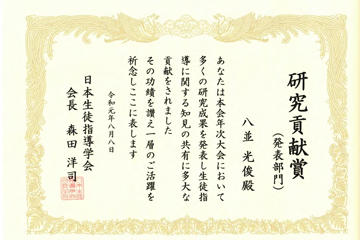 研究貢献賞
(発表部門)
八並 光俊殿
あなたは本会年次大会において
多くの研究成果を発表し生徒指
導に関する知見の共有に多大な
貢献をされました
その功績を讃え一層のご活躍を
祈念しここに表します
令和元年八月八日
日本生徒指導学会
会長 森田 洋司